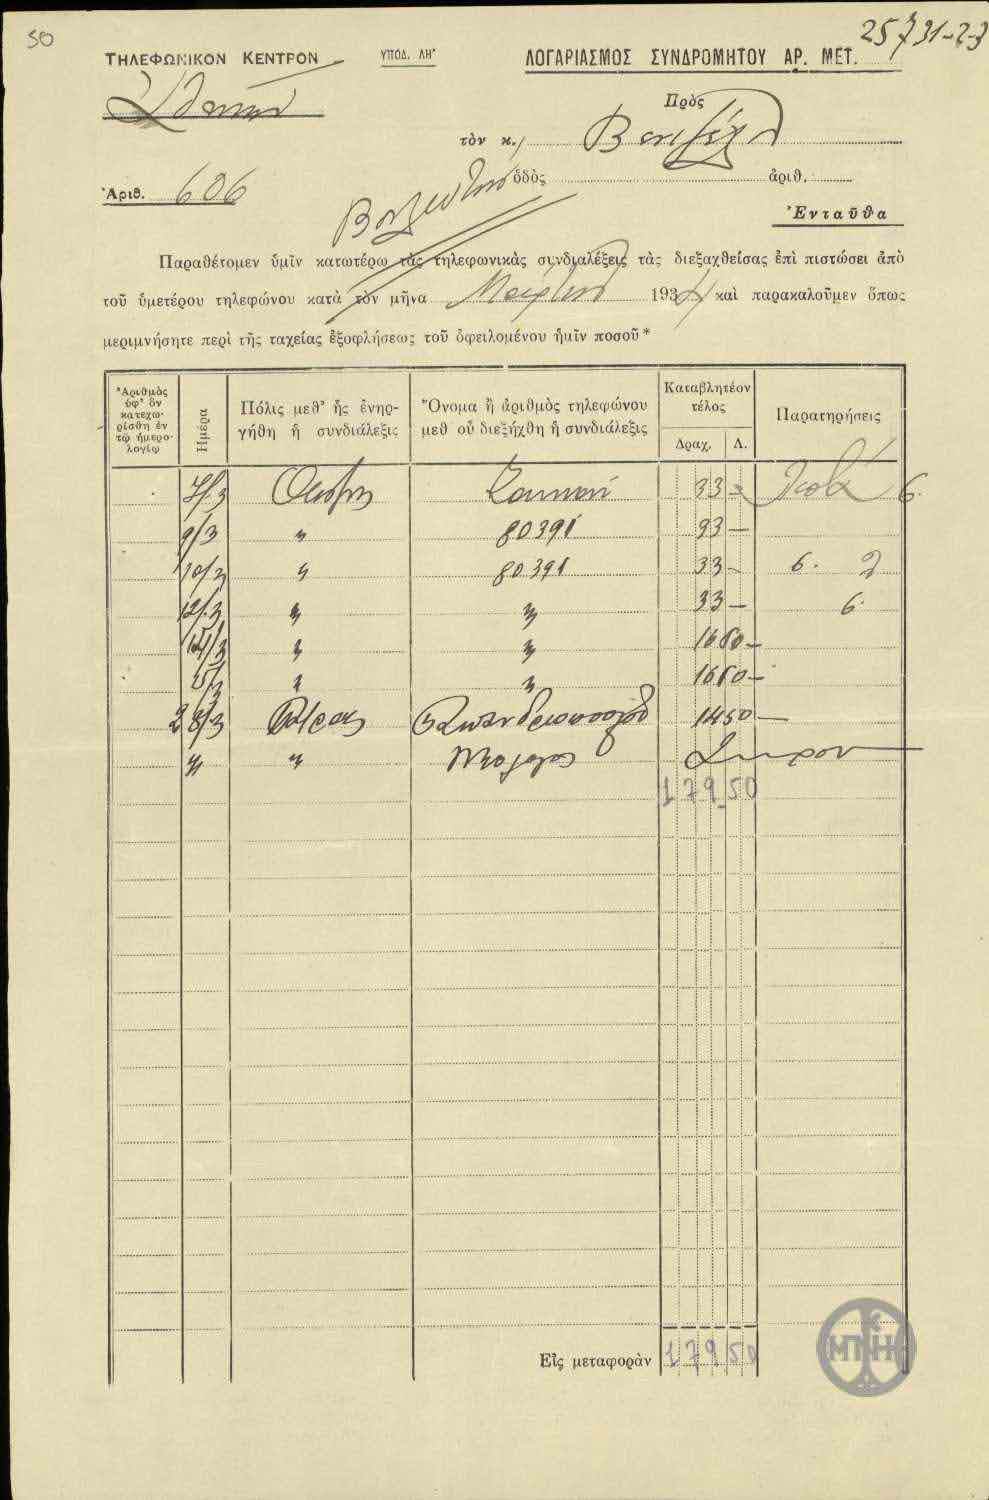 50
25731-2-3
ΤΗΛΕΦΩΝΙΚΟΝ ΚΕΝΤΡΟΝ ΥΠΟΔ. ΛΗ' ΛΟΓΑΡΙΑΣΜΟΣ ΣΥΝΔΡΟΜΗΤΟΥ ΑΡ. ΜΕΤ.
Πρὸς
τὸν κ. Βενιζέλον
Βουλευτὴν ὁδὸς ἀριθ.
Ἀριθ. 606
Ἐνταῦθα
Παραθέτομεν ὑμῖν κατωτέρω τὰς τηλεφωνικὰς συνδιαλέξεις τὰς διεξαχθείσας ἐπὶ πιστώσει ἀπὸ
τοῦ ὑμετέρου τηλεφώνου κατὰ τὸν μῆνα Μάρτιον 1934 καὶ παρακαλοῦμεν ὅπως
μεριμνήσητε περὶ τῆς ταχείας ἐξοφλήσεως τοῦ ὀφειλομένου ἡμῖν ποσοῦ*
Ἀριθμὸς ὑφ' ὃν κατεχωρίσθη ἐν τῷ ἡμερολογίῳ Ἡμέρα Πόλις μεθ' ἧς ἐνηργήθη ἡ συνδιάλεξις Ὄνομα ἢ ἀριθμὸς τηλεφώνου μεθ οὗ διεξήχθη ἡ συνδιάλεξις Καταβλητέον τέλος Δραχ. Λ. Παρατηρήσεις
7/3 33- 6.
9/3 " 80391 33-
10/3 " 80391 33- 6. 2
12/3 " " 33- 6.
14/3 " " 1650-
15/3 " " 1650-
28/3 Πάτρας 1450-
" "
179.50
Εἰς μεταφορὰν 179.50
ΜΝΗ